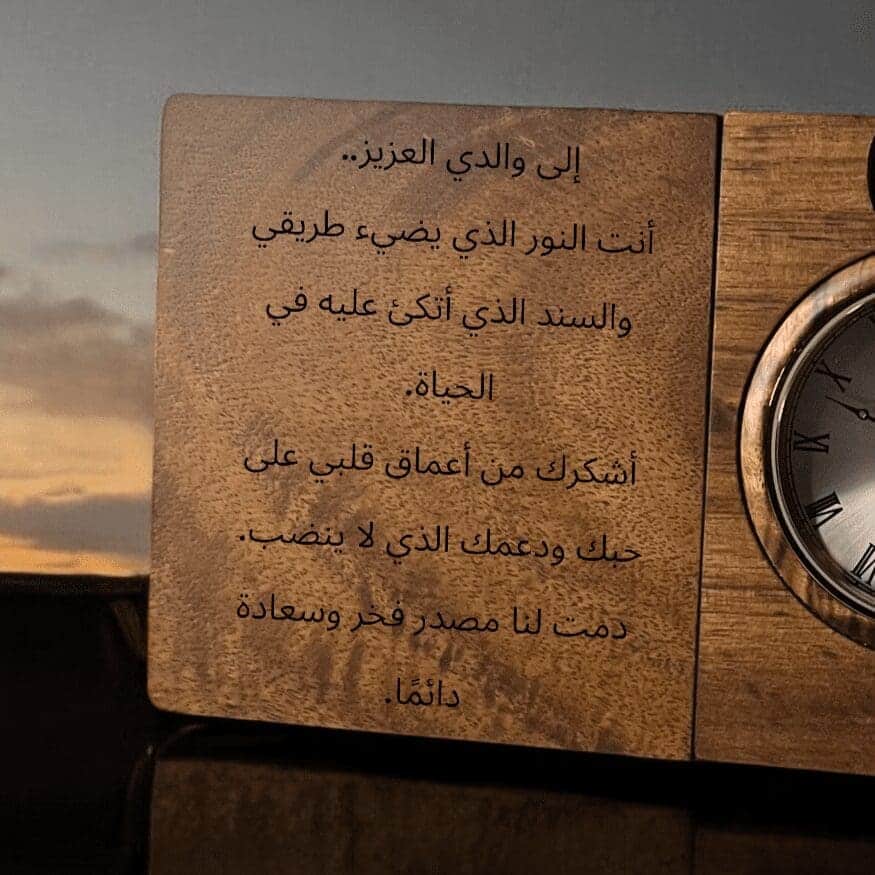 إلى والدي العزيز..
أنت النور الذي يضيء طريقي
والسند الذي أتكئ عليه في
الحياة.
أشكرك من أعماق قلبي على
حبك ودعمك الذي لا ينضب.
دمت لنا مصدر فخر وسعادة
دائمًا.
X
IX
VIII
VII